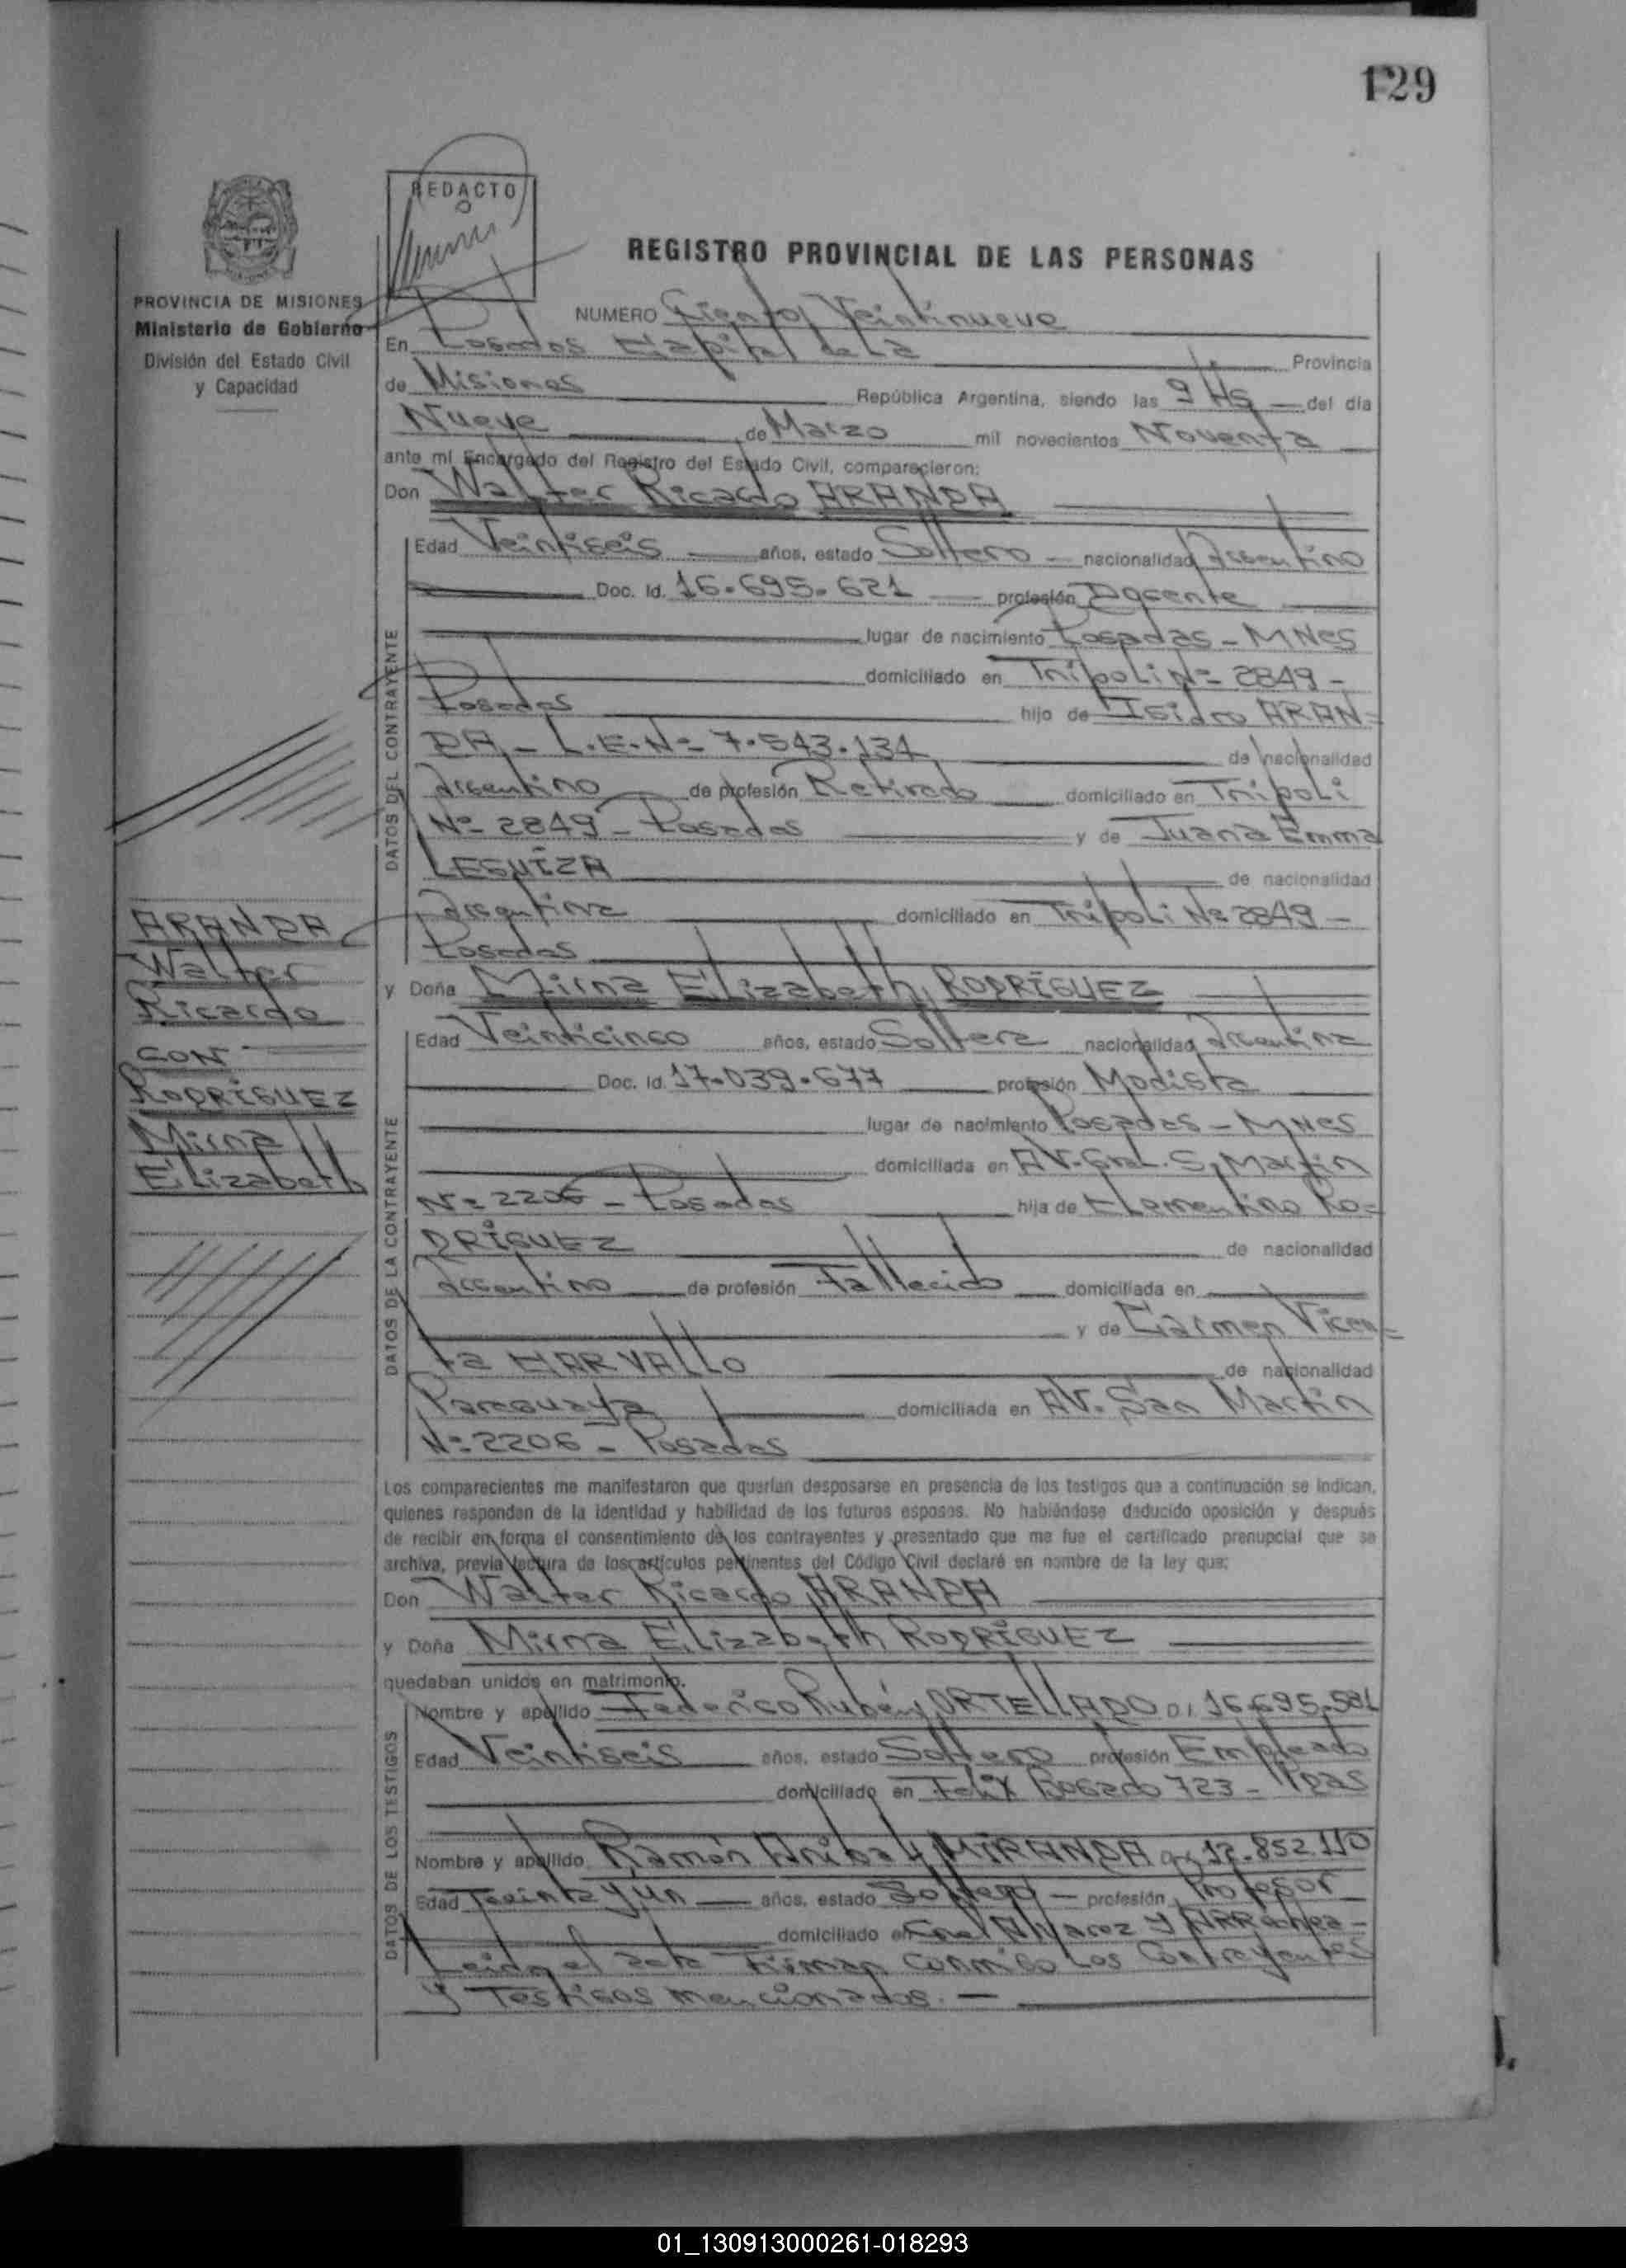 129
REDACTO
REGISTRO PROVINCIAL DE LAS PERSONAS
PROVINCIA DE MISIONES
Ministerio de Gobierno
División del Estado Civil
y Capacidad
NUMERO Ciento Veintinueve
En Posadas Capital de La Provincia
de Misiones República Argentina, siendo las 9 Hs del día
Nueve de Marzo mil novecientos Noventa
ante mí Encargado del Registro del Estado Civil, comparecieron:
Don Walter Ricardo ARANDA
DATOS DEL CONTRAYENTE
Edad Veintiseis años, estado Soltero nacionalidad Argentino
Doc. Id. 16.695.621 profesión Docente
lugar de nacimiento Posadas - MNES
domiciliado en Tripoli Nº 2849 -
Posadas hijo de Isidro ARAN=
DA - L.E.Nº 7.543.134 de nacionalidad
Argentino de profesión Retirado domiciliado en Tripoli
Nº 2849 - Posadas y de Juana Emma
LEGUIZA de nacionalidad
Argentina domiciliado en Tripoli Nº 2849 -
Posadas
ARANDA
Walter
Ricardo
CON
RODRIGUEZ
Mirna
Elizabeth
y Doña Mirna Elizabeth RODRIGUEZ
DATOS DE LA CONTRAYENTE
Edad Veinticinco años, estado Soltera nacionalidad Argentina
Doc. Id. 17.039.677 profesión Modista
lugar de nacimiento Posadas - MNES
domiciliada en AV. Gral. S. Martin
Nº 2206 - Posadas hija de Clementino RO=
DRIGUEZ de nacionalidad
Argentino de profesión Fallecido domiciliada en
y de Carmen Vicen=
ta CARVALLO de nacionalidad
Paraguaya domiciliada en AV. San Martin
Nº 2206 - Posadas
Los comparecientes me manifestaron que querían desposarse en presencia de los testigos que a continuación se indican,
quienes respondan de la identidad y habilidad de los futuros esposos. No habiéndose deducido oposición y después
de recibir en forma el consentimiento de los contrayentes y presentado que me fue el certificado prenupcial que se
archiva, previa lectura de los artículos pertinentes del Código Civil declaré en nombre de la ley que:
Don Walter Ricardo ARANDA
y Doña Mirna Elizabeth RODRIGUEZ
quedaban unidos en matrimonio.
DATOS DE LOS TESTIGOS
Nombre y apellido Federico Rubén ORTELLADO DI 16.695.581
Edad Veintiseis años, estado Soltero profesión Empleado
domiciliado en Felix Bogado 723 - Pdas
Nombre y apellido Ramón Anibal MIRANDA 12.852.110
Edad Treinta y un años, estado Soltero profesión Profesor
domiciliado en Cnel Alvarez y ARRechea -
Leida el acta Firman conmigo Los Contrayentes
y Testigos mencionados. -
01_130913000261-018293